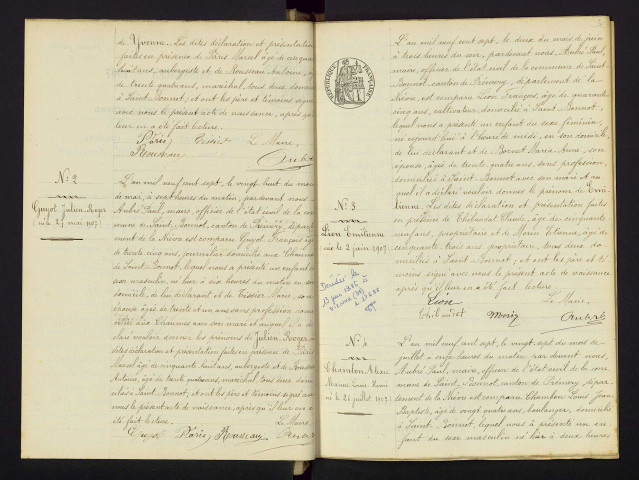 de Yvonne. Les dites déclaration et présentation
faites en présence de Pâris Marcel âgé de cinquante
huit ans, aubergiste et de Rousseau Antoine, âgé
de trente quatre ans, maréchal, tous deux domiciliés
à Saint Bonnot, et ont les père et témoins signé
avec nous le présent acte de naissance, après qu'il
leur en a été fait lecture.
Pâris Tissier Le Maire,
Rousseau Aubré
N° 2
Guyot Julien Roger
né le 27 mai 1907
L'an mil neuf cent sept, le vingt huit du mois
de mai, à sept heures du matin, pardevant nous
Aubré Paul, maire, officier de l'état civil de la com
mune de Saint Bonnot, canton de Prémery, départe
ment de la Nièvre est comparu Guyot François âgé
de trente cinq ans, journalier domicilié aux Chaumes
de Saint Bonnot, lequel nous a présenté un enfant du
sexe masculin, né hier à six heures du matin en son
domicile, de lui déclarant et de Tissier Marie, son
épouse, âgée de trente un ans sans profession
aux Chaumes avec son mari et auquel il a dé
claré vouloir donner les prénoms de Julien Roger. Les
dites déclaration et présentation faites en présence de Pâris
Marcel âgé de cinquante huit ans, aubergiste et de Rousseau
Antoine, âgé de trente quatre ans, maréchal, tous deux domi
ciliés à Saint Bonnot, et ont les père et témoins signé avec
nous le présent acte de naissance, après qu'il leur en a
été fait lecture. Le Maire,
Guyot Pâris Rousseau Aubré
RÉPUBLIQUE FRANÇAISE
L'an mil neuf cent sept, le deux du mois de juin
à trois heures du soir, pardevant nous, Aubré Paul,
maire, officier de l'état civil de la commune de Saint
Bonnot, canton de Prémery, département de la
Nièvre, est comparu Léon François, âgé de quarante
cinq ans, cultivateur, domicilié à Saint Bonnot,
lequel nous a présenté un enfant du sexe féminin,
né aujourd'hui à l'heure de midi, en son domicile,
de lui déclarant et de Marie Anne, son
épouse, âgée de trente quatre ans, sans profession,
domiciliée à Saint Bonnot avec son mari et au
quel il a déclaré vouloir donner le prénom de Emi
lienne. Les dites déclaration et présentation faites
en présence de Thibaudat Claude, âgé de cinquante
neuf ans, propriétaire et de Morin Etienne, âgé de
cinquante trois ans propriétaire, tous deux do
miciliés à Saint Bonnot; et ont les père et té
moins signé avec nous le présent acte de naissance
après qu'il leur en a été fait lecture.
Léon Le Maire
Thibaudat Morin Aubré
N° 3
Léon Emilienne
née le 2 juin 1907
Décédée le
N° 4
né le 26 juillet 1907
L'an mil neuf cent sept, le vingt sept du mois de
juillet à onze heures du matin par devant nous,
Aubré Paul, maire, officier de l'état civil de la com
mune de Saint Bonnot, canton de Prémery, dépar
tement de la Nièvre est comparu Chambon Louis Jean
Baptiste, âgé de vingt quatre ans, boulanger, domicilié
à Saint Bonnot, lequel nous a présenté un en
fant du sexe masculin né hier à deux heures